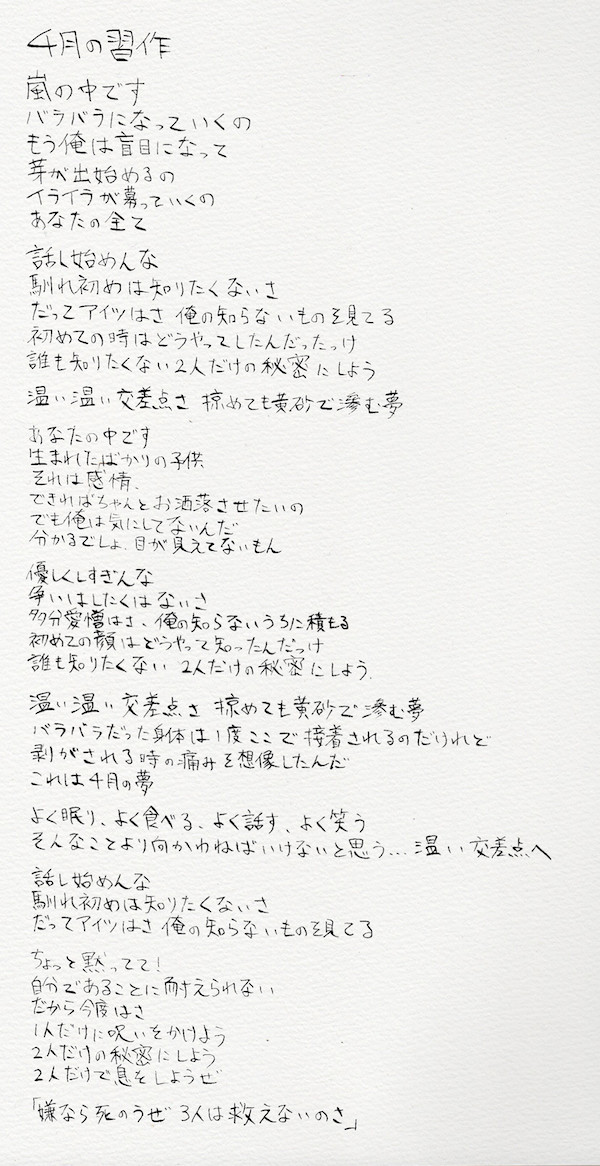 4月の習作
嵐の中です
バラバラになっていくの
もう俺は盲目になって
芽が出始めるの
イライラが募っていくの
あなたの全て
話し始めんな
馴れ初めは知りたくないさ
だってアイツはさ 俺の知らないものを見てる
初めての時はどうやってしたんだったっけ
誰も知りたくない2人だけの秘密にしよう
温い温い交差点さ 掠めても黄砂で滲む夢
あなたの中です
生まれたばかりの子供
それは感情、
できればちゃんとお洒落させたいの
でも俺は気にしてないんだ
分かるでしょ、目が見えてないもん
優しくしすぎんな
争いはしたくはないさ
多分愛憎はさ、俺の知らないうちに積もる
初めての顔はどうやって知ったんだっけ
誰も知りたくない 2人だけの秘密にしよう、
温い温い交差点さ 掠めても黄砂で滲む夢
バラバラだった身体は1度ここで接着されるのだけれど
剥がされる時の痛みを想像したんだ
これは4月の夢
よく眠り、よく食べる、よく話す、よく笑う
そんなことより向かわねばいけないと思う...温い交差点へ
話し始めんな
馴れ初めは知りたくないさ
だってアイツはさ 俺の知らないものを見てる
ちょっと黙ってて!
自分であることに耐えられない
だから今度はさ
1人だけに呪いをかけよう
2人だけの秘密にしよう
2人だけで息をしようぜ
「嫌なら死のうぜ 3人は救えないのさ」